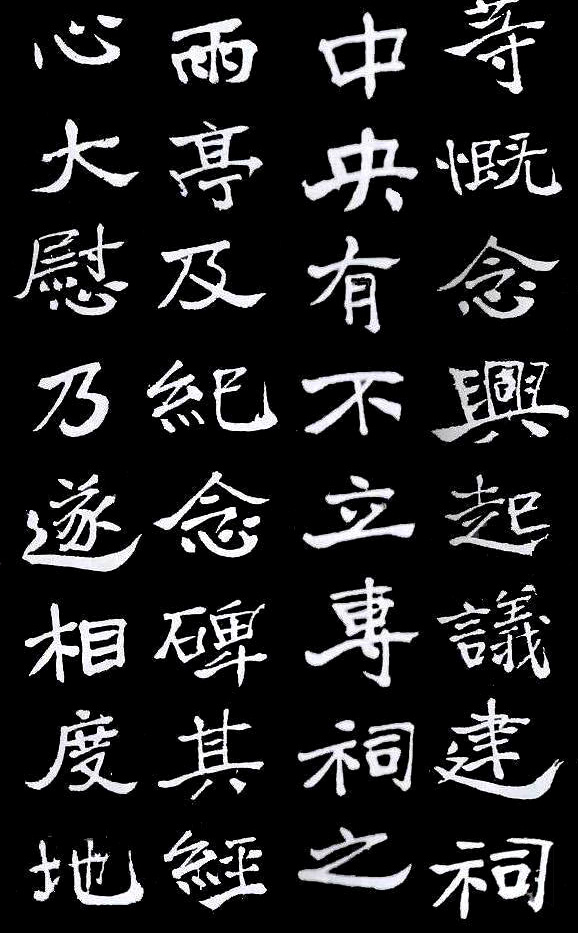 等慨念興起議建祠
中央有不立專祠之
兩亭及紀念碑其經
心大慰乃遂相度地